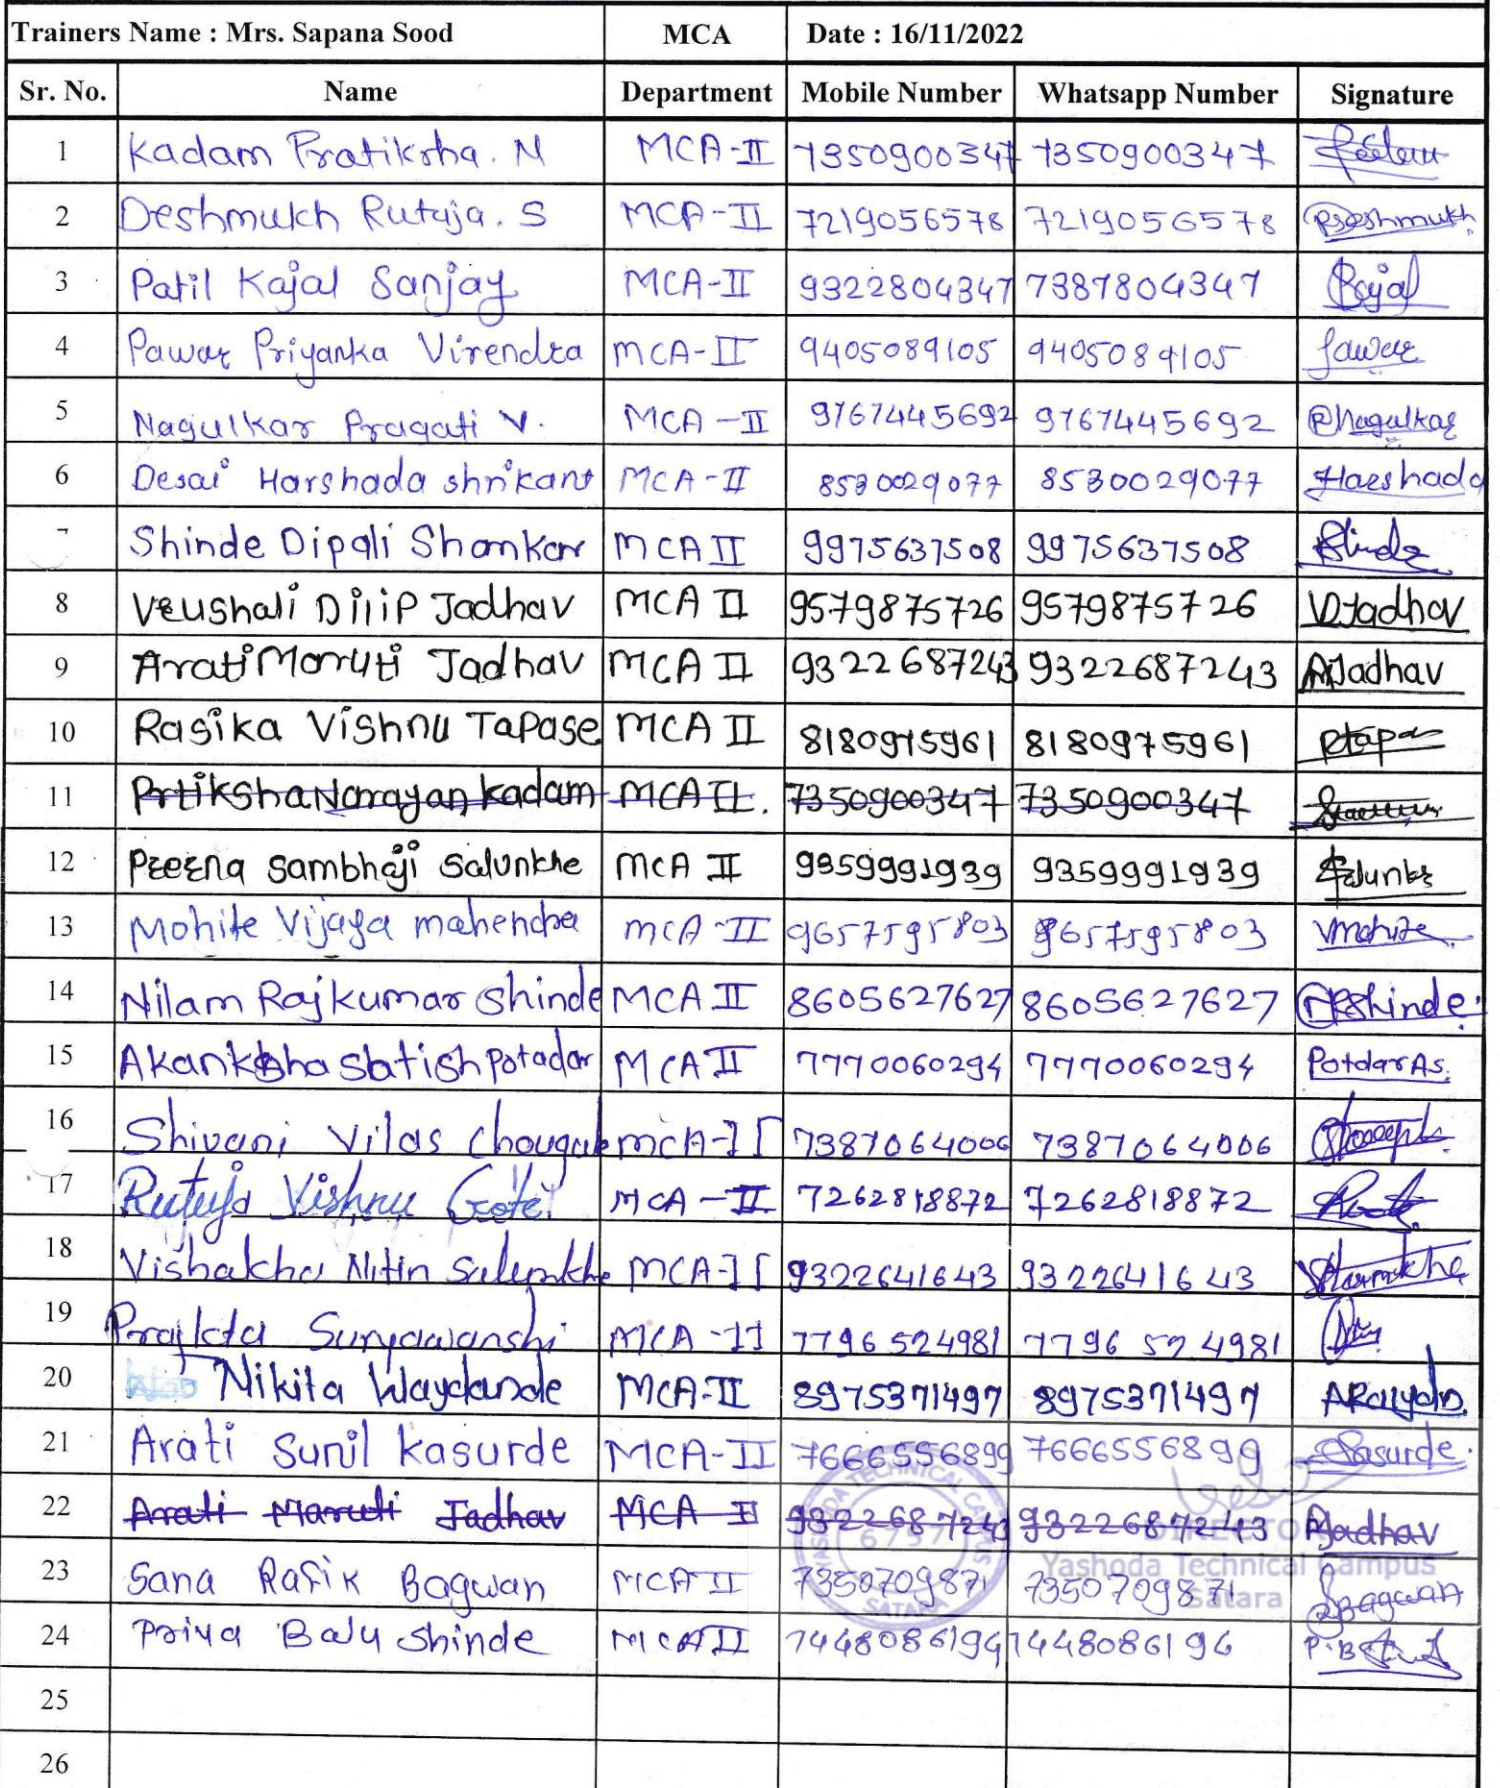 Trainers Name : Mrs. Sapana Sood MCA Date : 16/11/2022
Sr. No. Name Department Mobile Number Whatsapp Number Signature
1 Kadam Pratiksha. N MCA-II 7350900347 7350900347
2 Deshmukh Rutuja. S MCA-II 7219056578 7219056578 RSDeshmukh
3 Patil Kajal Sanjay MCA-II 9322804347 7387804347 Kajal
4 Pawar Priyanka Virendra MCA-II 9405089105 9405089105 Pawar
5 Nagulkar Pragati V. MCA-II 9767445692 9767445692 PNagulkar
6 Desai Harshada Shrikant MCA-II 8530029077 8530029077 Harshada
7 Shinde Dipali Shankar MCA II 9975637508 9975637508 Shinde
8 Vrushali Dilip Jadhav MCA II 9579875726 9579875726 VDJadhav
9 Arati Maruti Jadhav MCA II 9322687243 9322687243 AJadhav
10 Rasika Vishnu Tapase MCA II 8180975961 8180975961 Rtapase
11 Prtiksha Narayan kadam MCA II. 7350900347 7350900347
12 Prerna Sambhaji Salunkhe MCA II 9359991939 9359991939
13 Mohite Vijaya mahendra MCA-II 9657595803 9657595803 VMohite
14 Nilam Rajkumar Shinde MCA II 8605627627 8605627627 NRShinde
15 Akanksha Satish Potadar MCA II 7770060294 7770060294 Potdar As.
16 Shivani Vilas Chougule MCA-II 7387064006 7387064006
17 Rutuja Vishnu Gote MCA-II 7262818872 7262818872
18 Vishakha Nitin Salunkhe MCA-II 9322641643 9322641643
19 Prajkta Suryawanshi MCA-II 7796524981 7796524981
20 Nikita Waydande MCA-II 8975371497 8975371497
21 Arati Sunil Kasurde MCA-II 7666556899 7666556899 Kasurde
22 Arati Maruti Jadhav MCA II 9322687243 9322687243 AJadhav
DIRECTOR
Yashoda Technical Campus
Satara
YASHODA TECHNICAL CAMPUS
6757
SATARA
23 Sana Rafik Bagwan MCA II 7350709871 7350709871 SRBagwan
24 Priya Balu Shinde MCA II 7448086194 7448086194
25
26